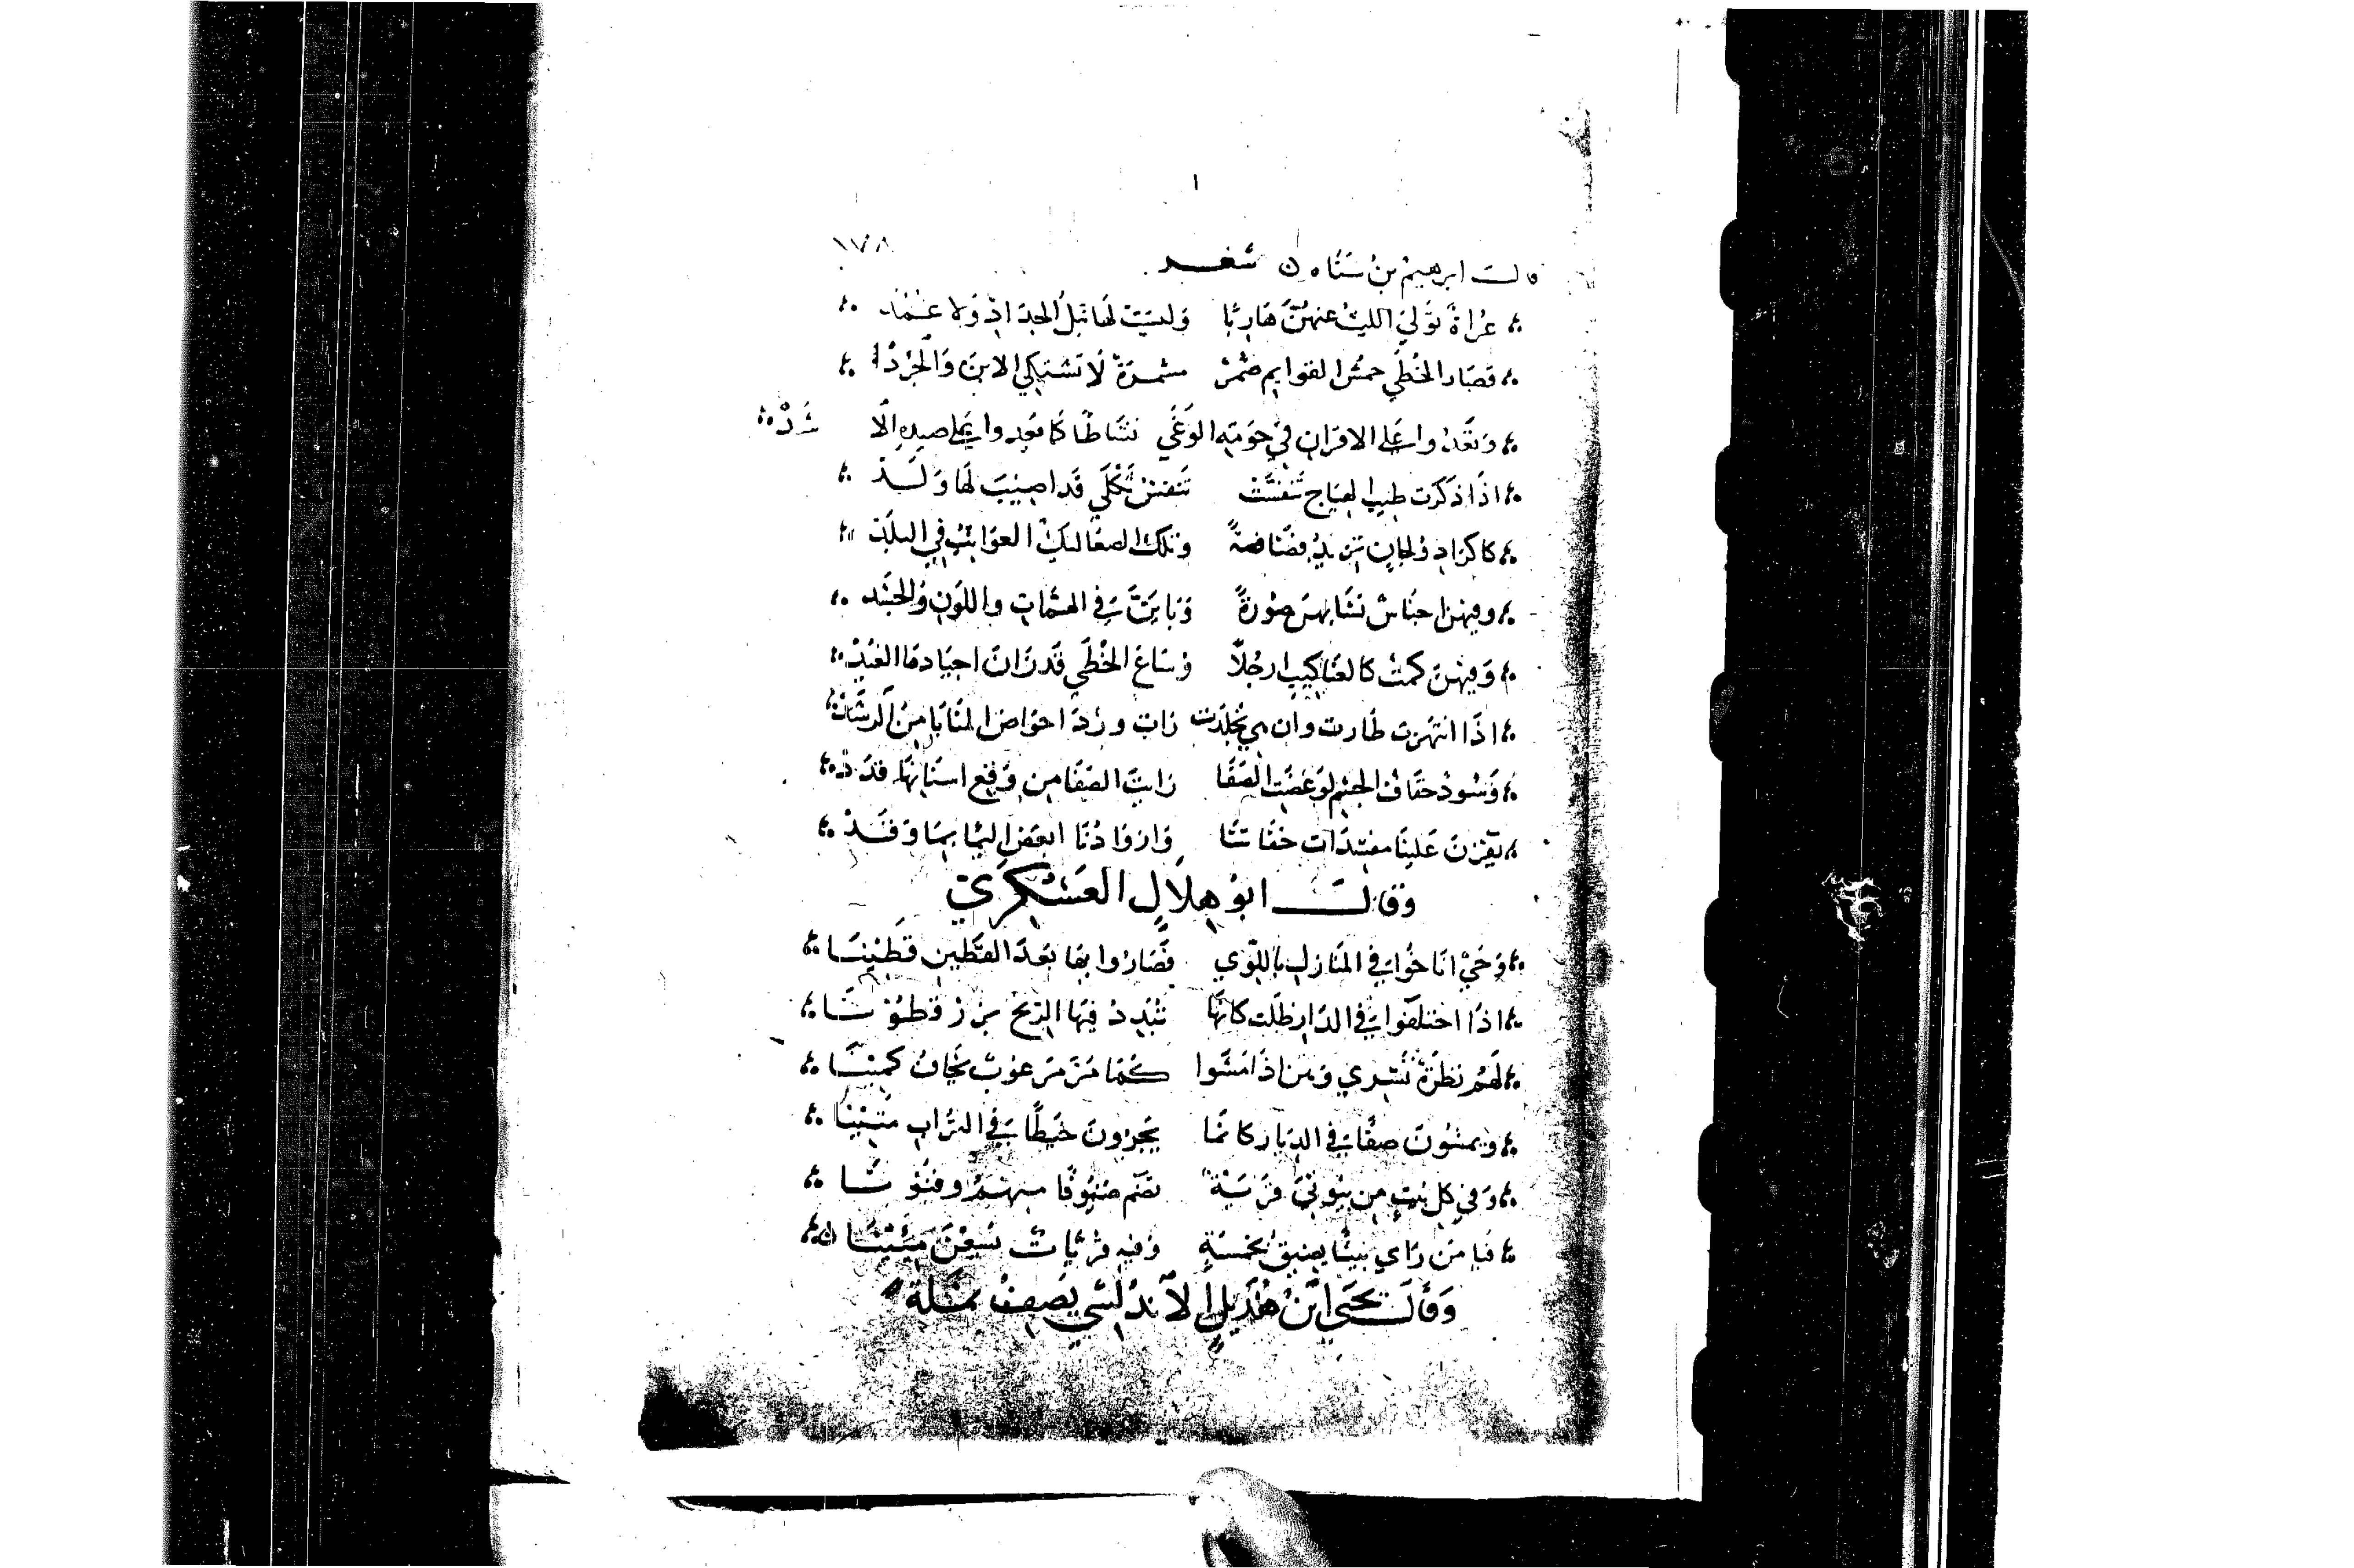 ١٧٨
قالــ ابرهيم بن سناه ن شعـــر
عراة تولي الليث عنهن هاربا وليست لها نبل الحداد ولا عمد
قصار الخطي حمش القوايم ضمر مشمرة لا تشتكي الاين والحرد
وتغدوا على الاقران في حومة الوغي نشاطا كما يعدوا على صيده الاسد
اذا ذكرت طيب الهياج تنفست تنفس ثكلي قد اصيب لها ولــد
كاكراد زلجان تزيد فضاضة وتلك الصعاليك الغوايث في البلد
وفيهن اجناس تشابهن صورة وباين في الهمات واللون والجسد
وفيهن كمت كالعناكيب ارجلا وساع الخطي قد زان اجيادها الغيد
اذا انتهزت طارت وان هي خلدت رات ورد احواض المنايا من الرشد
وسود خفاف الجسم لو عضت الصفا رايت الصفا من وقع اسنانها قدد
يغرن علينا مفسدات خفاتنا وازوادنا ابغض اليما بما وفـد
وقالــــ ابو هلال العسكري
وحي اناخوا في المنازل باللوي فصاروا بها بعد القطين قطينــا
اذا اختلفوا في الدار ظلت كانها تبدد فيها الريح بزر قطونــا
لهم نظرة تسري ومن اذا مشوا كما مر مرعوب يخاف كمينــا
ويمشون صفا في الديار كانما يجرون خيطا في التراب مبينا
وفي كل بيت من بيوتي قرية تضم صنوفا منهم وفنونــا
فيا من راي بيتا يضيق بخمسة وفيه قريات تسعن ميئينــا ن
وقالــ يحيى ابن هذيل الاندلسي يصف نملة